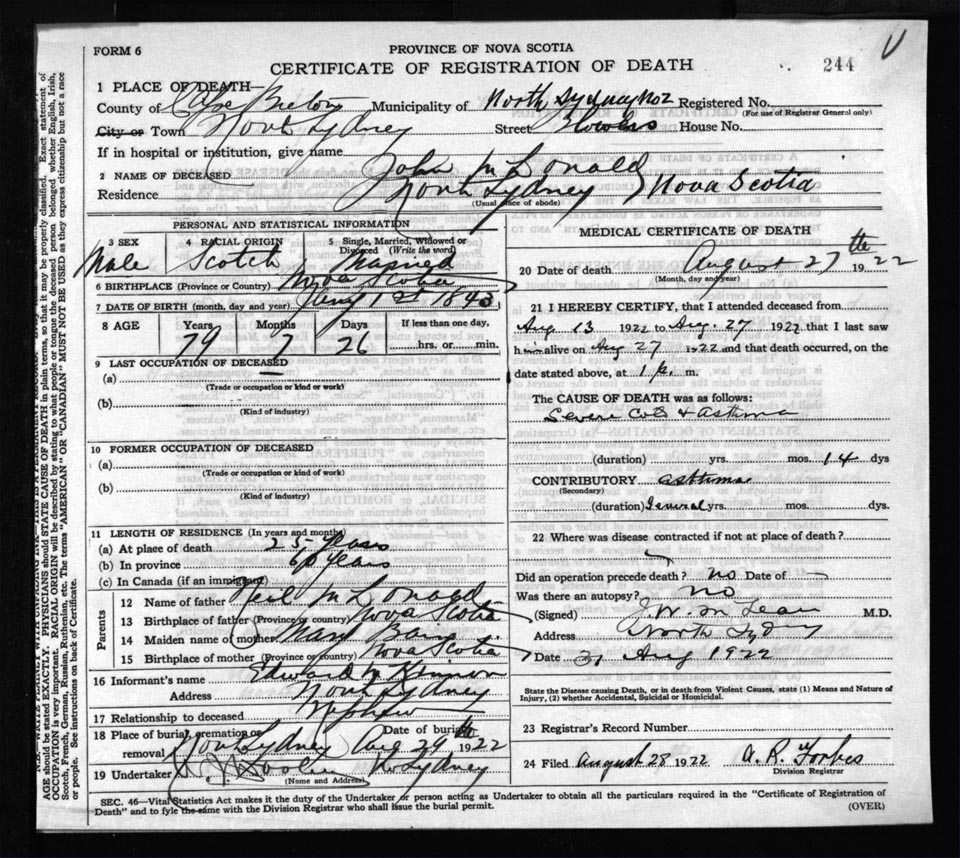 FORM 6
PROVINCE OF NOVA SCOTIA
CERTIFICATE OF REGISTRATION OF DEATH
244
1 PLACE OF DEATH—
County of Cape Breton Municipality of North Sydney No 2 Registered No.
(For use of Registrar General only)
City or Town North Sydney Street House No.
If in hospital or institution, give name
2 NAME OF DECEASED John McDonald
Residence North Sydney Nova Scotia
(Usual place of abode)
PERSONAL AND STATISTICAL INFORMATION
3 SEX 4 RACIAL ORIGIN 5 Single, Married, Widowed or Divorced (Write the word)
Male Scotch Married
6 BIRTHPLACE (Province or Country) Nova Scotia
7 DATE OF BIRTH (month, day and year) 1st 1843
8 AGE Years Months Days If less than one day,
79 7 26 hrs. or min.
9 LAST OCCUPATION OF DECEASED
(a)
(Trade or occupation or kind or work)
(b)
(Kind of industry)
10 FORMER OCCUPATION OF DECEASED
(a)
(Trade or occupation or kind of work)
(b)
(Kind of industry)
11 LENGTH OF RESIDENCE (In years and months)
(a) At place of death 25 years
(b) In province years
(c) In Canada (if an immigrant)
Parents
12 Name of father Neil McDonald
13 Birthplace of father (Province or country) Nova Scotia
14 Maiden name of mother Mary
15 Birthplace of mother (Province or country) Nova Scotia
16 Informant's name Edward
Address North Sydney
17 Relationship to deceased Nephew
18 Place of burial, cremation or removal North Sydney Date of burial Aug 29th 1922
19 Undertaker No Sydney
(Name and Address)
MEDICAL CERTIFICATE OF DEATH
20 Date of death August 27th 1922
(Month, day and year)
21 I HEREBY CERTIFY, that I attended deceased from
Aug 13 1922 to Aug. 27 1922 that I last saw
him alive on Aug 27 1922 and that death occurred, on the
date stated above, at 1 p. m.
The CAUSE OF DEATH was as follows:
Severe & Asthma
(duration) yrs. mos. 14 dys
CONTRIBUTORY asthma
(Secondary)
(duration) Several yrs. mos. dys.
22 Where was disease contracted if not at place of death?
Did an operation precede death? no Date of
Was there an autopsy? no
(Signed) J. W. McLean M.D.
Address North Sydney
Date 31 Aug 1922
State the Disease causing Death, or in death from Violent Causes, state (1) Means and Nature of
Injury, (2) whether Accidental, Suicidal or Homicidal.
23 Registrar's Record Number
24 Filed August 28 1922 A. R. Forbes
Division Registrar
SEC. 46—Vital Statistics Act makes it the duty of the Undertaker or person acting as Undertaker to obtain all the particulars required in the "Certificate of Registration of
Death" and to fyle the same with the Division Registrar who shall issue the burial permit.
(OVER)
AGE should be stated EXACTLY. PHYSICIANS should STATE CAUSE OF DEATH in plain terms, so that it may be properly classified. Exact statement of
OCCUPATION is very important. RACIAL ORIGIN will be described by stating to what people or tongue the deceased person belonged whether English, Irish,
Scotch, French, German, Russian, Ruthenian, etc. The terms "AMERICAN" OR "CANADIAN" MUST NOT BE USED as they express citizenship but not a race
or people. See instructions on back of Certificate.